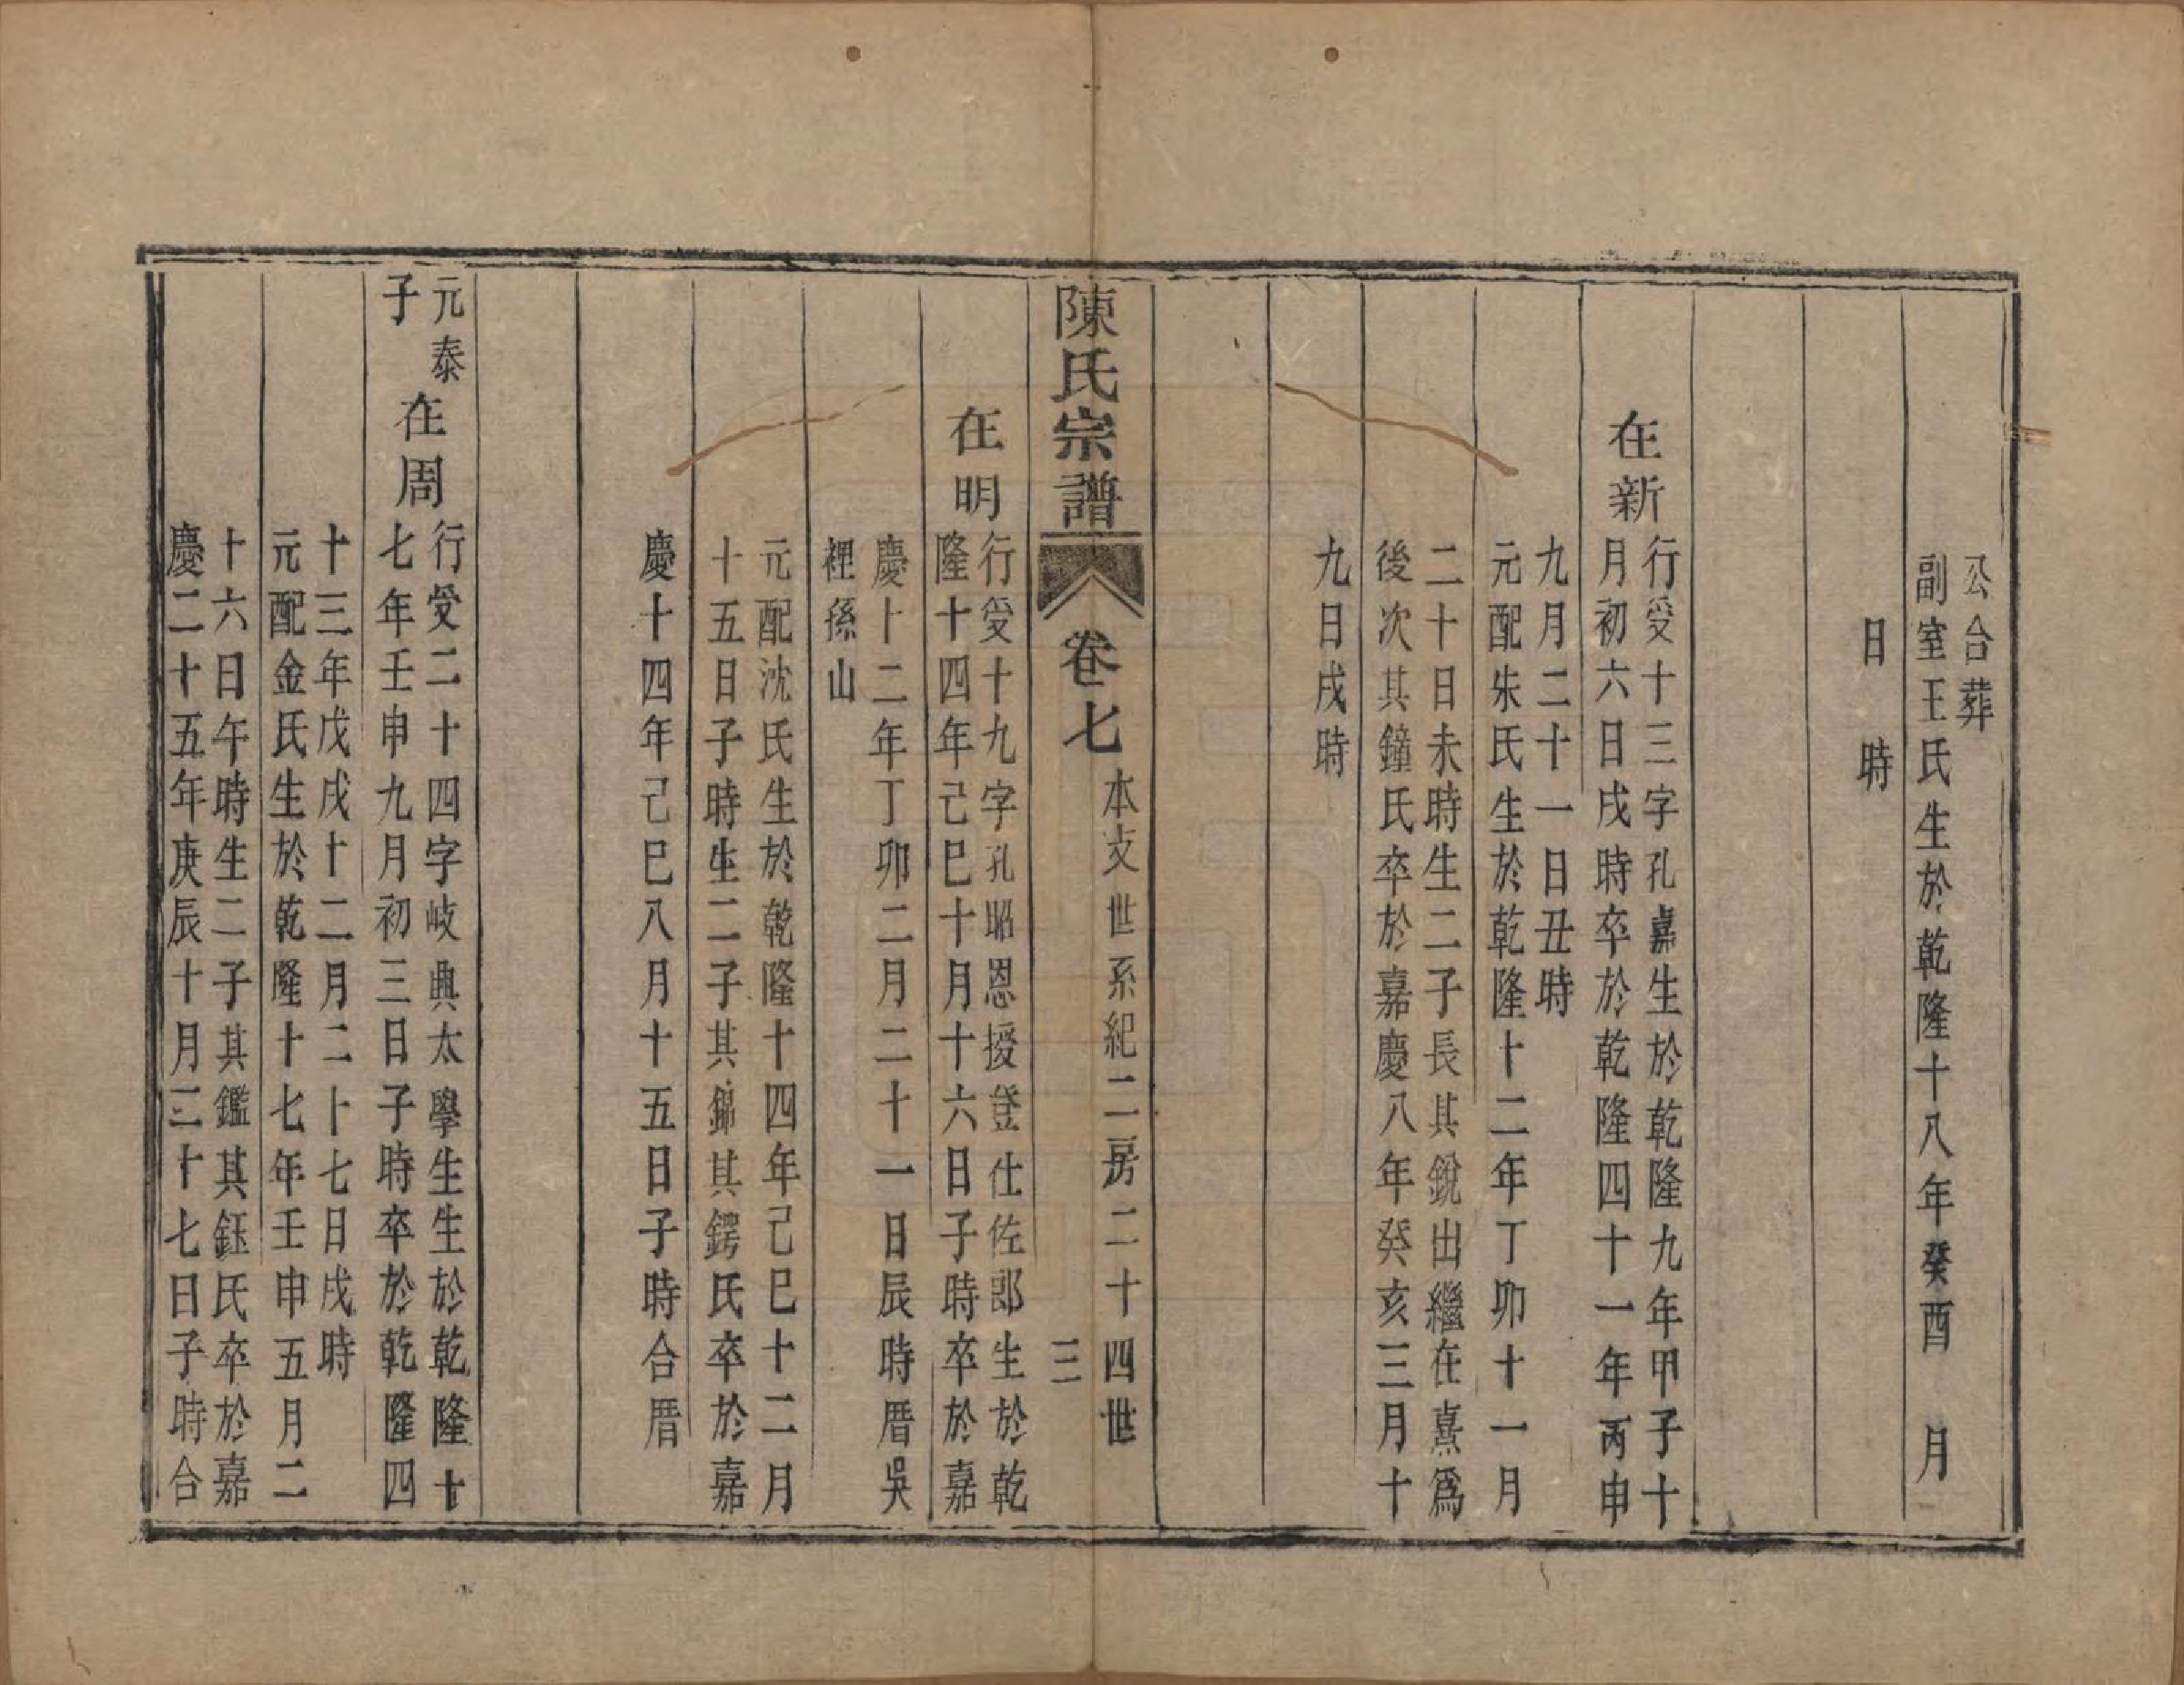 公合葬
副室王氏生於乾隆十八年癸酉　月
日　時
在新
行受十三字孔嘉生於乾隆九年甲子十
月初六日戌時卒於乾隆四十一年丙申
九月二十一日丑時
元配朱氏生於乾隆十二年丁卯十一月
二十日未時生二子長其銳出繼在熹爲
後次其鐘氏卒於嘉慶八年癸亥三月十
九日戌時
陳氏宗譜
卷七
本支世系紀二房二十四世
三
在明
行受十九字孔昭恩授登仕佐郎生於乾
隆十四年己巳十月十六日子時卒於嘉
慶十二年丁卯二月二十一日辰時厝吳
裡孫山
元配沈氏生於乾隆十四年己巳十二月
十五日子時生二子其錦其鍔氏卒於嘉
慶十四年己巳八月十五日子時合厝
元泰
子
在周
行受二十四字岐典太學生生於乾隆十
七年壬申九月初三日子時卒於乾隆四
十三年戊戌十二月二十七日戌時
元配金氏生於乾隆十七年壬申五月二
十六日午時生二子其鑑其鈺氏卒於嘉
慶二十五年庚辰十月二十七日子時合